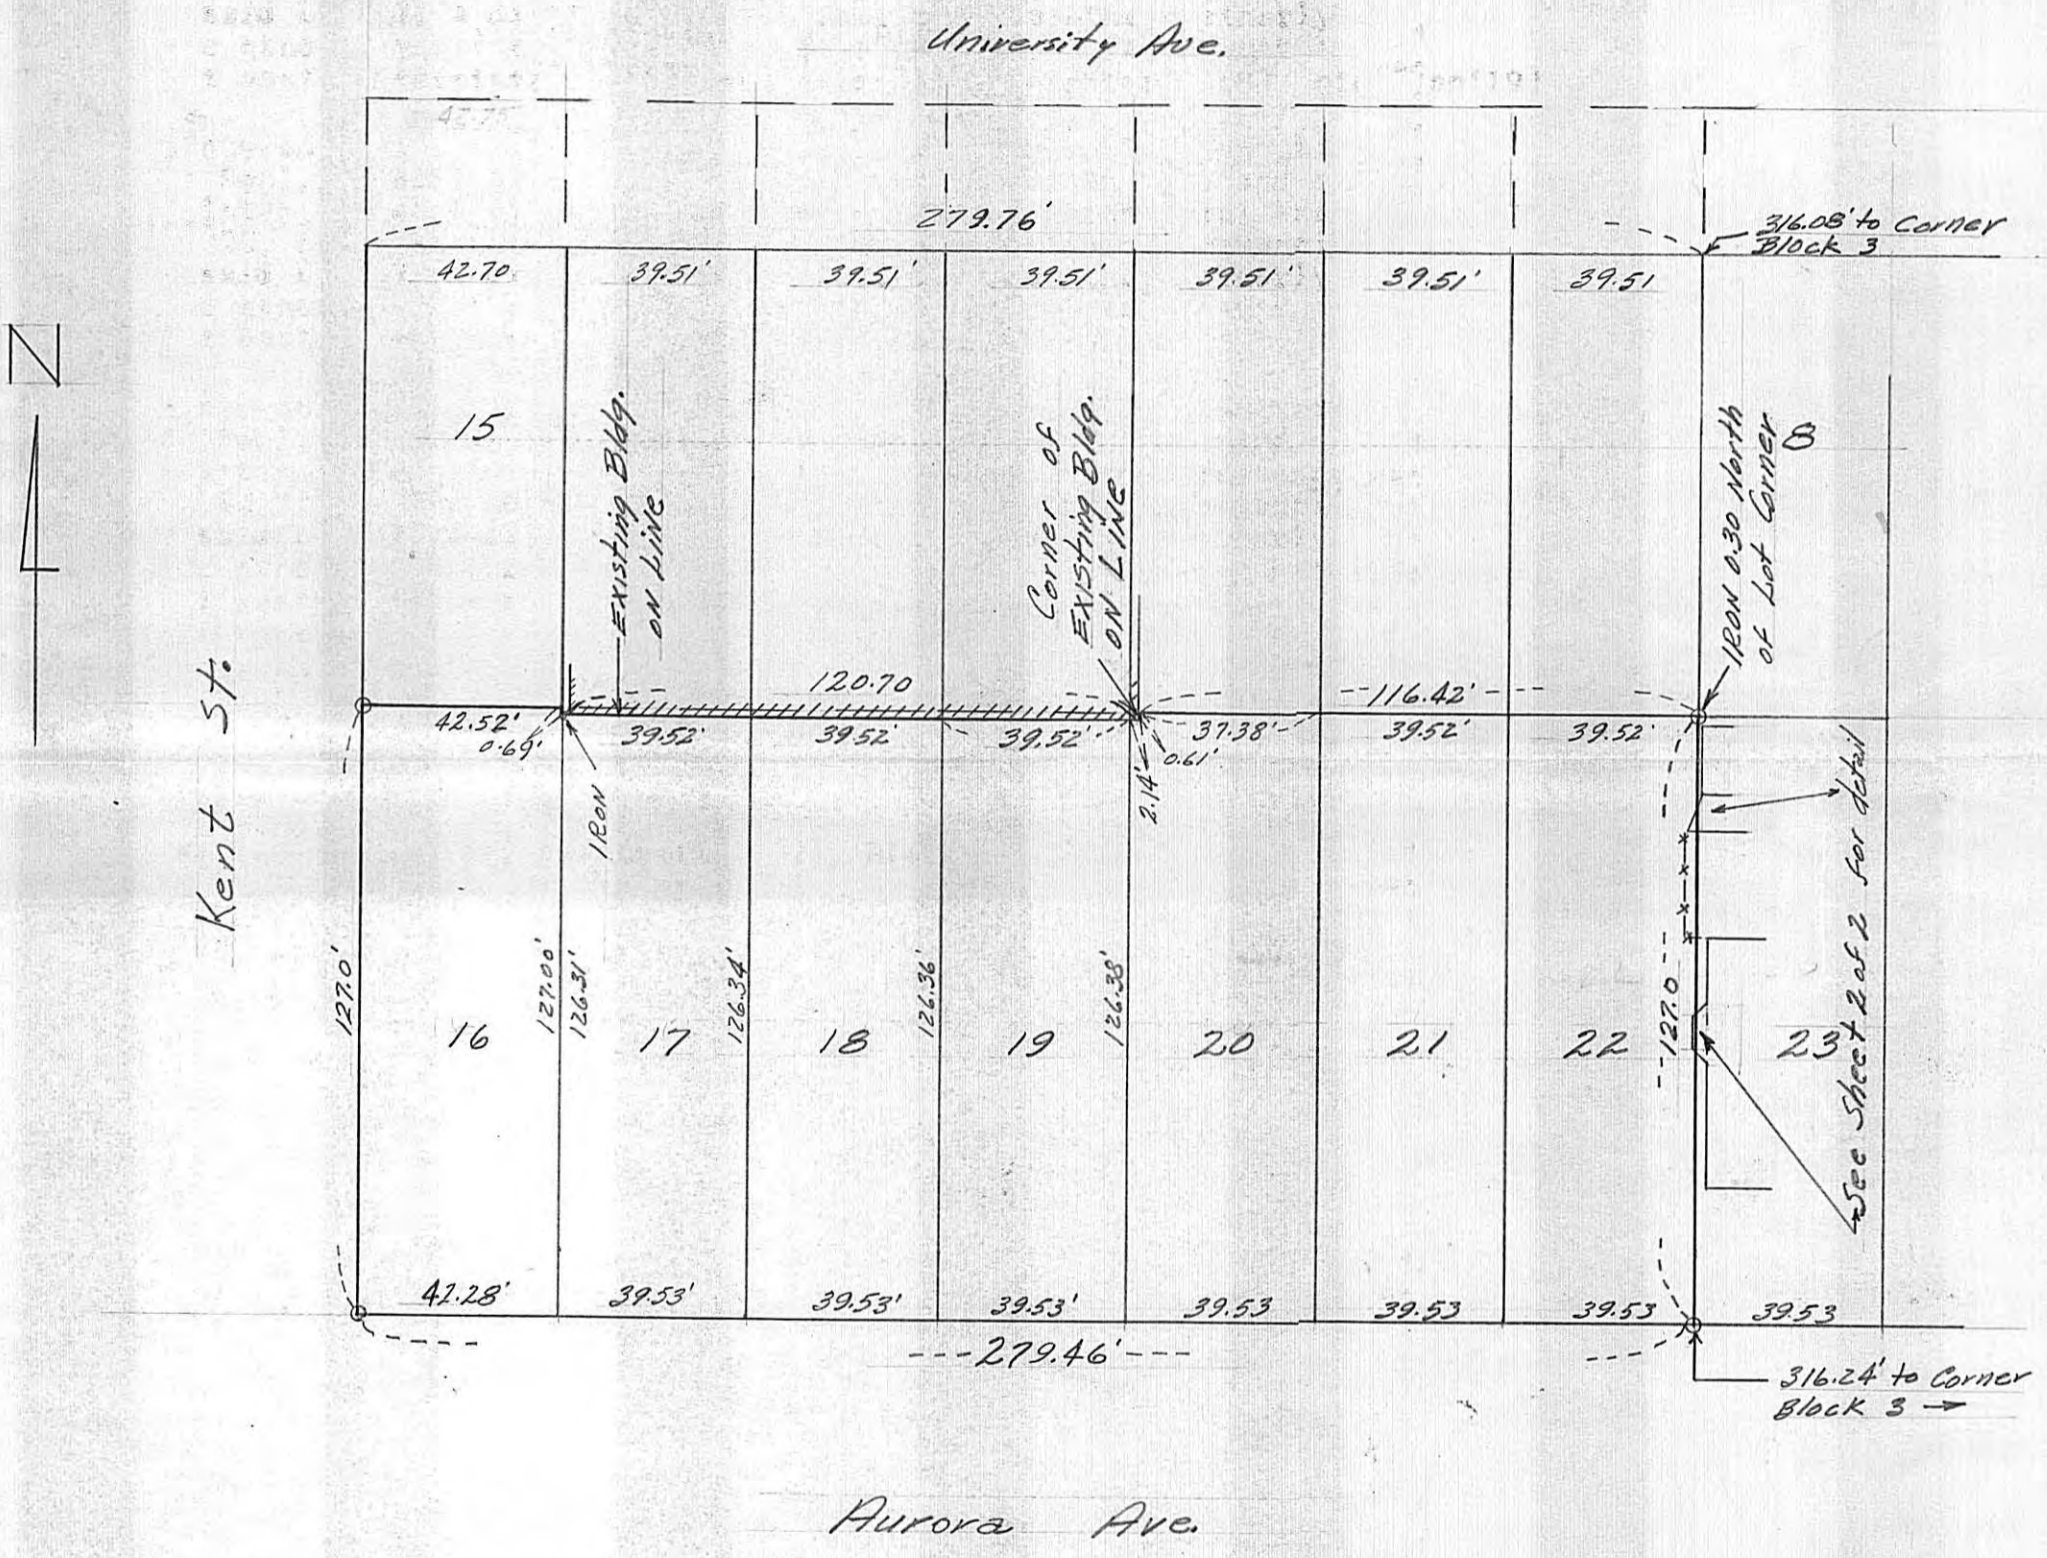 University Ave.
42.75
279.76'
316.08' to Corner
Block 3
42.70
39.51'
39.51'
39.51'
39.51'
39.51'
39.51
N
15
Existing Bldg.
ON LiNe
Corner of
Existing Bldg.
ON LiNe
IRON 0.30 North
of Lot Corner
8
Kent St.
120.70
116.42'
42.52'
0.69'
39.52'
39.52'
39.52'
37.38'
39.52'
39.52'
0.61'
2.14'
IRON
See Sheet 2 of 2 for detail
127.0'
127.00'
126.31'
126.34'
126.36'
126.38'
127.0
16
17
18
19
20
21
22
23
42.28'
39.53'
39.53'
39.53'
39.53
39.53
39.53
39.53
279.46'
316.24' to Corner
Block 3
Aurora Ave.